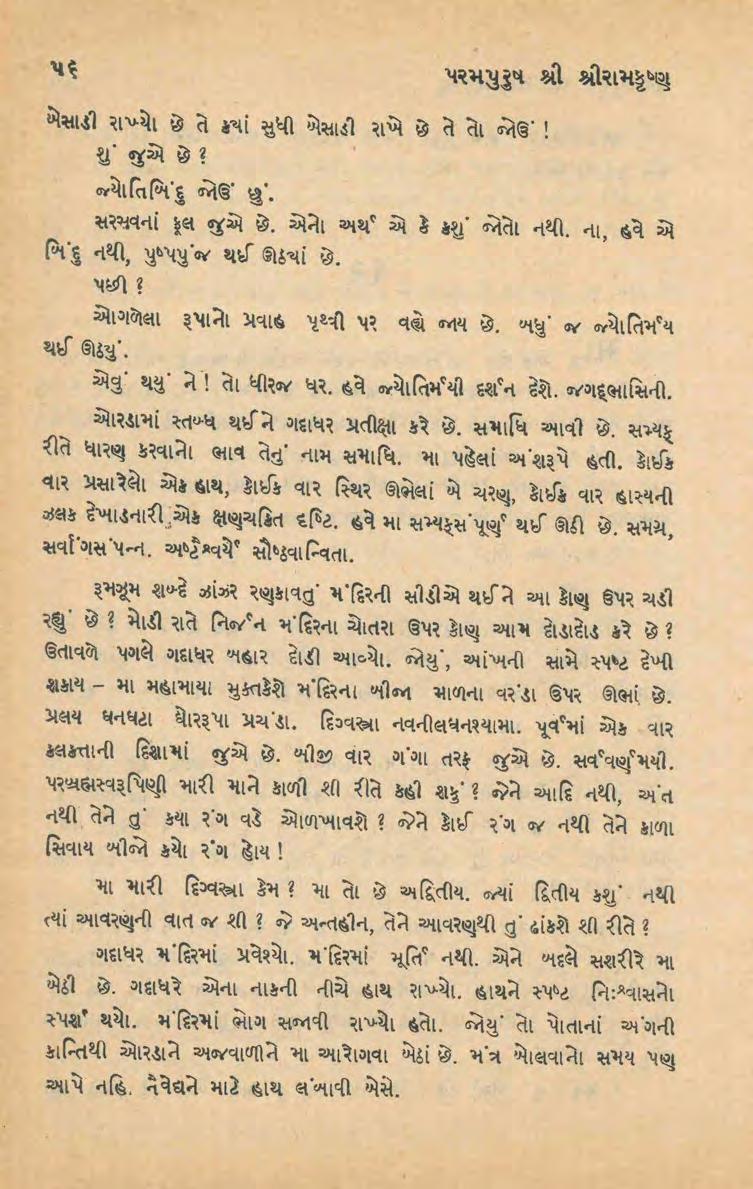 ૫૬
પરમપુરુષ શ્રી શ્રીરામકૃષ્ણ
બેસાડી રાખ્યો છે તે ક્યાં સુધી બેસાડી રાખે છે તે તો જોઉં !
શું જુએ છે ?
જ્યોતિબિંદુ જોઉં છું.
સરસવનાં ફૂલ જુએ છે. એનો અર્થ એ કે કશું જોતો નથી. ના, હવે એ
બિંદુ નથી, પુષ્પપુંજ થઈ ઊઠ્યાં છે.
પછી ?
ઓગળેલા રૂપાનો પ્રવાહ પૃથ્વી પર વહ્યે જાય છે. બધું જ જ્યોતિર્મય
થઈ ઊઠ્યું.
એવું થયું ને ! તો ધીરજ ધર. હવે જ્યોતિર્મયી દર્શન દેશે. જગદ્ભાસિની.
ઓરડામાં સ્તબ્ધ થઈને ગદાધર પ્રતીક્ષા કરે છે. સમાધિ આવી છે. સમ્યક્
રીતે ધારણ કરવાનો ભાવ તેનું નામ સમાધિ. મા પહેલાં અંશરૂપે હતી. કોઈક
વાર પ્રસારેલો એક હાથ, કોઈક વાર સ્થિર ઊભેલાં બે ચરણ, કોઈક વાર હાસ્યની
ઝલક દેખાડનારી એક ક્ષણચકિત દૃષ્ટિ. હવે મા સમ્યક્સંપૂર્ણ થઈ ઊઠી છે. સમગ્ર,
સર્વાંગસંપન્ન. અષ્ટૈશ્વર્યે સૌષ્ઠવાન્વિતા.
રૂમઝૂમ શબ્દે ઝાંઝર રણકાવતું મંદિરની સીડીએ થઈને આ કોણ ઉપર ચડી
રહ્યું છે ? મોડી રાતે નિર્જન મંદિરના ચોતરા ઉપર કોણ આમ દોડાદોડ કરે છે ?
ઉતાવળે પગલે ગદાધર બહાર દોડી આવ્યો. જોયું, આંખની સામે સ્પષ્ટ દેખી
શકાય – મા મહામાયા મુક્તકેશે મંદિરના બીજા માળના વરંડા ઉપર ઊભાં છે.
પ્રલય ઘનઘટા ઘોરરૂપા પ્રચંડા. દિગ્વસ્ત્રા નવનીલઘનશ્યામા. પૂર્વમાં એક વાર
કલકત્તાની દિશામાં જુએ છે. બીજી વાર ગંગા તરફ જુએ છે. સર્વવર્ણમયી.
પરબ્રહ્મસ્વરૂપિણી મારી માને કાળી શી રીતે કહી શકું ? જેને આદિ નથી, અંત
નથી તેને તું કયા રંગ વડે ઓળખાવશે ? જેને કોઈ રંગ જ નથી તેને કાળા
સિવાય બીજો કયો રંગ હોય !
મા મારી દિગ્વસ્ત્રા કેમ ? મા તો છે અદ્વિતીય. જ્યાં દ્વિતીય કશું નથી
ત્યાં આવરણની વાત જ શી ? જે અન્તહીન, તેને આવરણથી તું ઢાંકશે શી રીતે ?
ગદાધર મંદિરમાં પ્રવેશ્યો. મંદિરમાં મૂર્તિ નથી. એને બદલે સશરીરે મા
બેઠી છે. ગદાધરે એના નાકની નીચે હાથ રાખ્યો. હાથને સ્પષ્ટ નિઃશ્વાસનો
સ્પર્શ થયો. મંદિરમાં ભોગ સજાવી રાખ્યો હતો. જોયું તો પોતાનાં અંગની
કાન્તિથી ઓરડાને અજવાળીને મા આરોગવા બેઠાં છે. મંત્ર બોલવાનો સમય પણ
આપે નહિ. નૈવેદ્યને માટે હાથ લંબાવી બેસે.